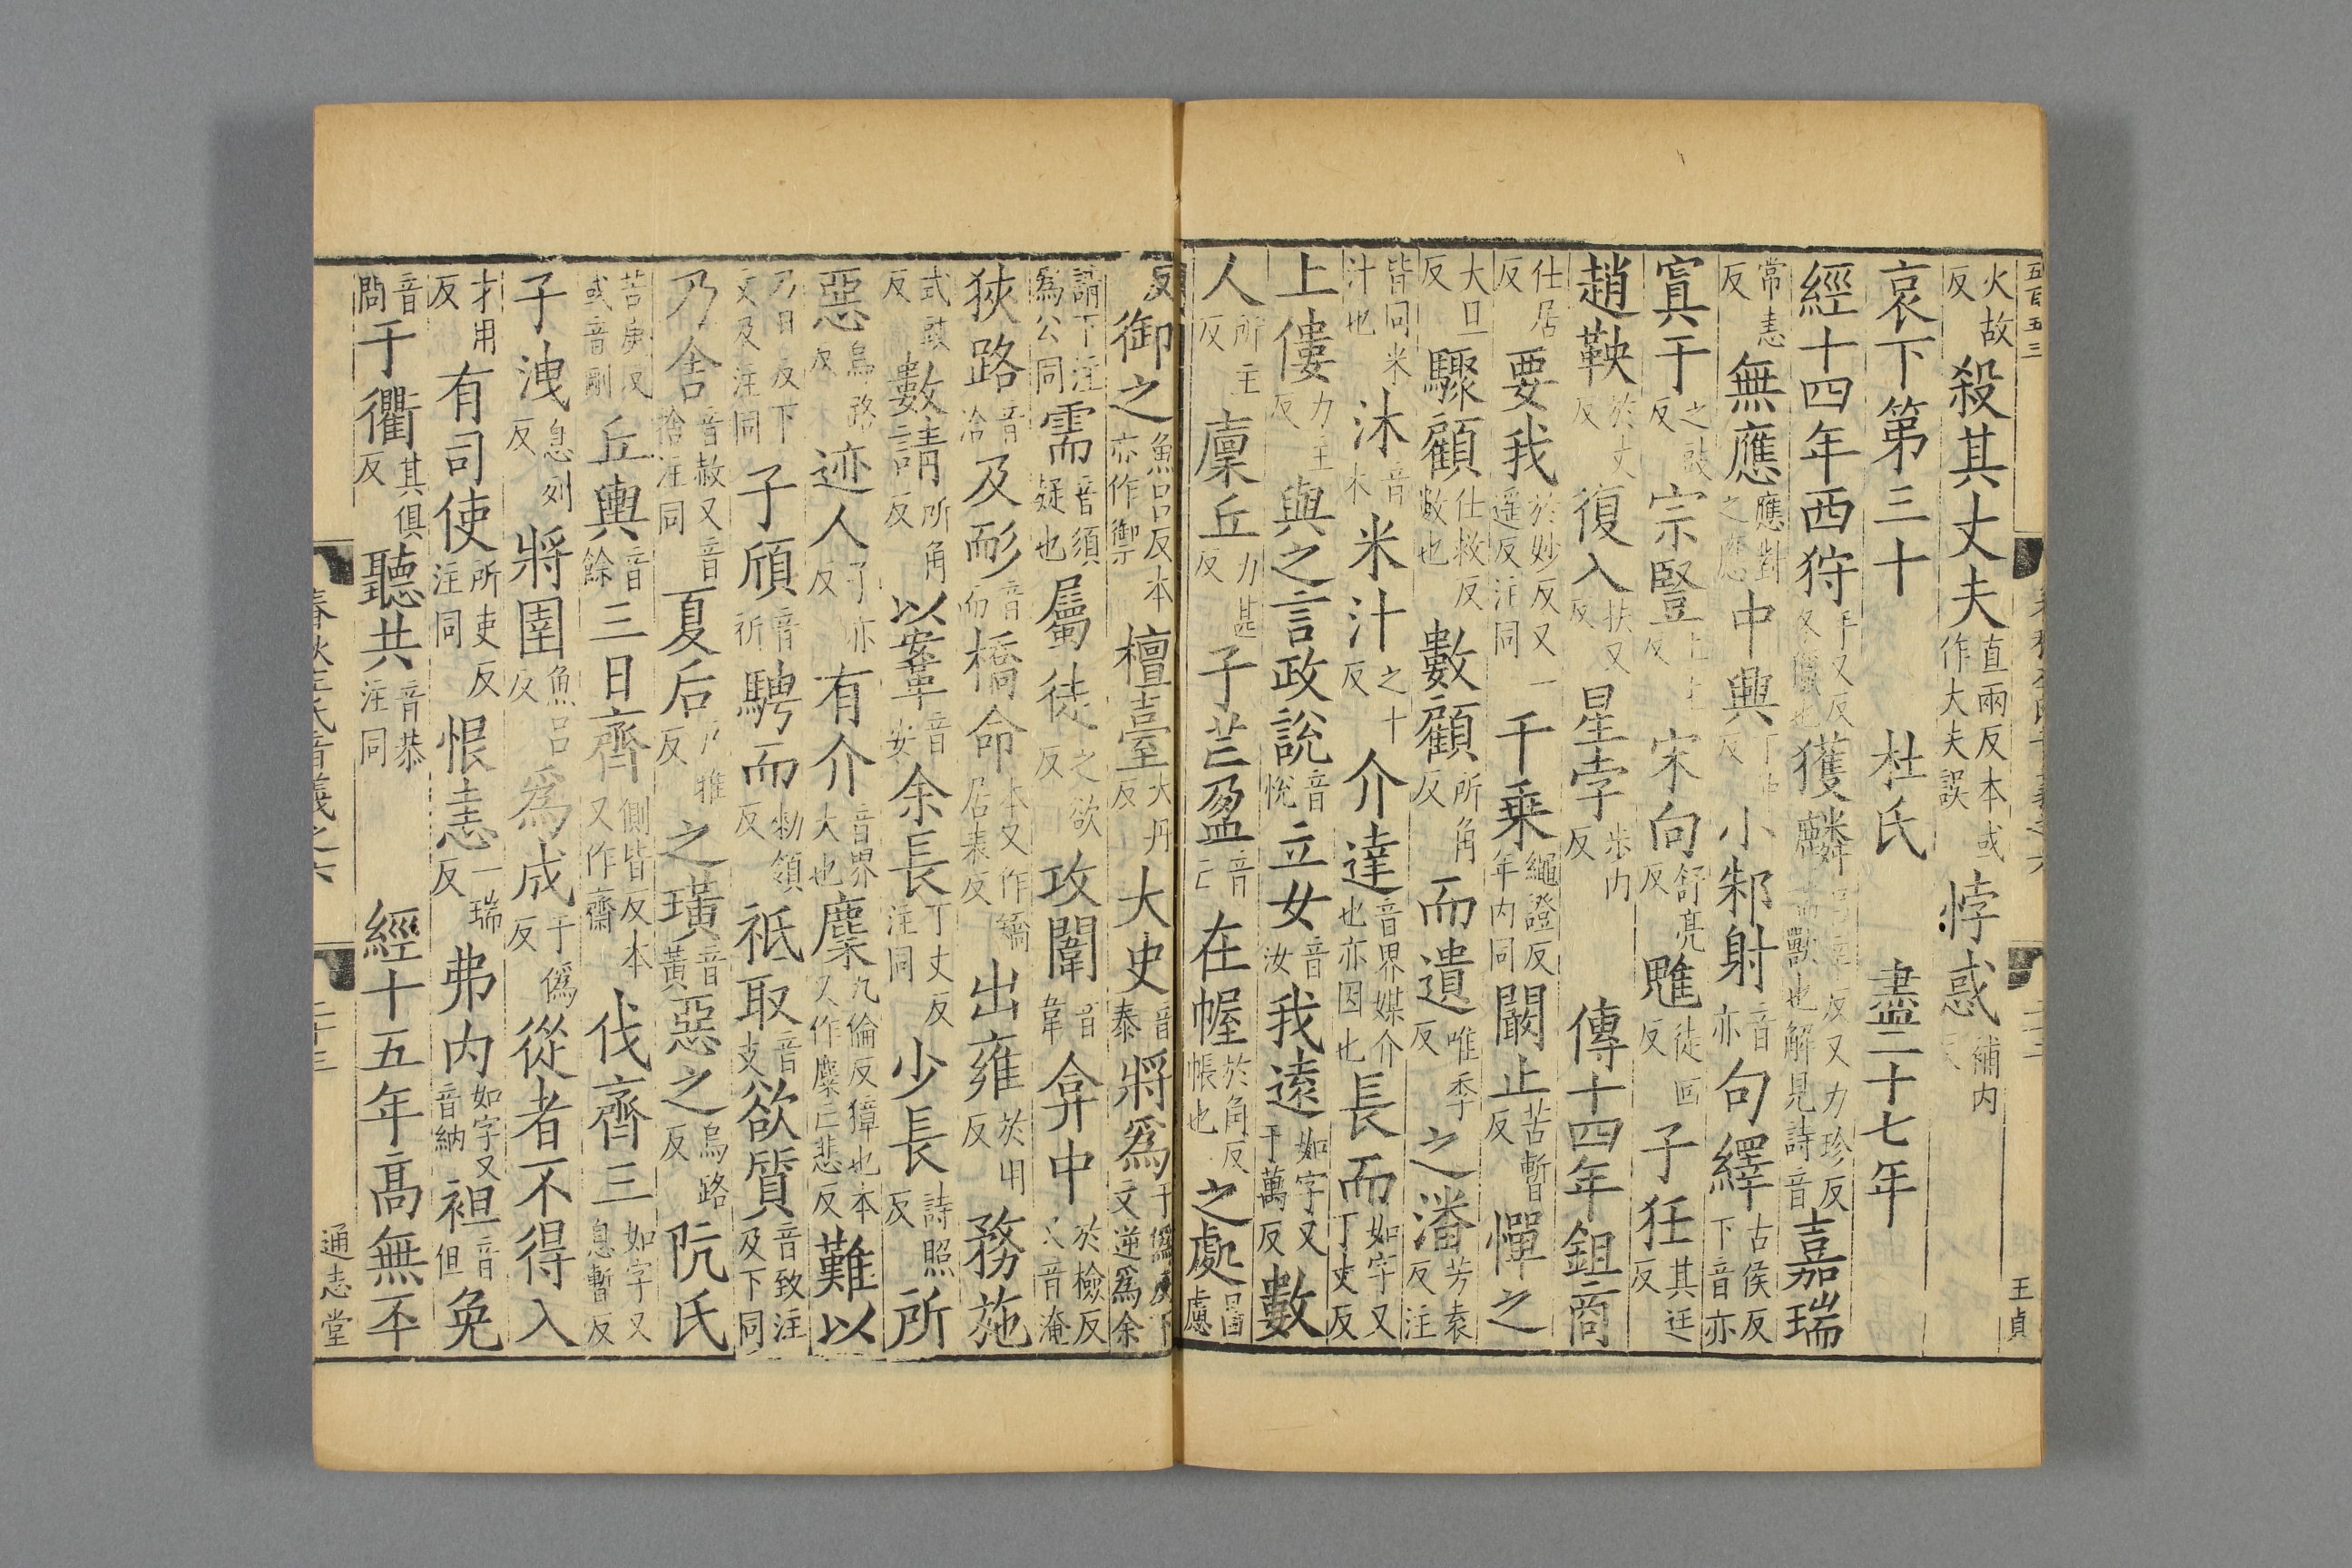 五百五三
王貞
火故反殺其丈夫直兩反本或作大夫誤悖惑補内
哀下第三十 杜氏 盡二十七年
經十四年西狩手又反冬獵也獲麟呂辛反又力珍反獸也解見詩音嘉瑞
常恚反無應應對之應中興丁仲反小邾射音亦句繹古侯反下音亦
寘于之豉反宗豎上主反宋向舒亮反魋徒回反子狂其廷反
趙鞅於丈反復入扶又反星孛步内反傳十四年鉏商
仕居反要我於妙反又一遥反注同千乘繩證反年内同闞止苦暫反憚之
大旦反驟顧仕救反敵也數顧所角反而遺唯季反之潘芳袁反注
皆同米汁也沐音木米汁之十反介達音界媒介也亦因也長而如字又丁丈反
上僂力主反與之言政說音悅立女音汝我遠如字又于萬反數
人所主反廩丘力甚反子芒盈音亡在幄於角反帳也之處昌慮
反御之魚呂反本亦作禦檀臺大丹反大史音泰將爲于僞反下文逆爲余
請下注爲公同需音須疑也屬徒之欲反攻闈音韋弇中於檢反又音淹
狹路音洽及耏音而橋命本又作矯居表反出雍於用反務施
式豉反數請所角反以䅁䩯音安余長丁丈反注同少長詩照反所
惡烏路反迹人子亦反有介音界大也麇九倫反獐也本又作麋亡悲反難以
乃旦反下文及注同子頎音祈騁而勑領反祇取音支欲質音致注及下同
乃舍音赦又音捨注同夏后戶雅反之璜音黃惡之烏路反阬氏
苦庚反或音剛丘輿音餘三日齊側皆反本又作齋伐齊三如字又息暫反
子洩息列反將圉魚呂反爲成于僞反從者不得入
才用反有司使所吏反注同恨恚一瑞反弗内如字又音納袒音但免
音問于衢其俱反聽共音恭注同 經十五年高無㔻
春秋左氏音義之六 二十三 通志堂